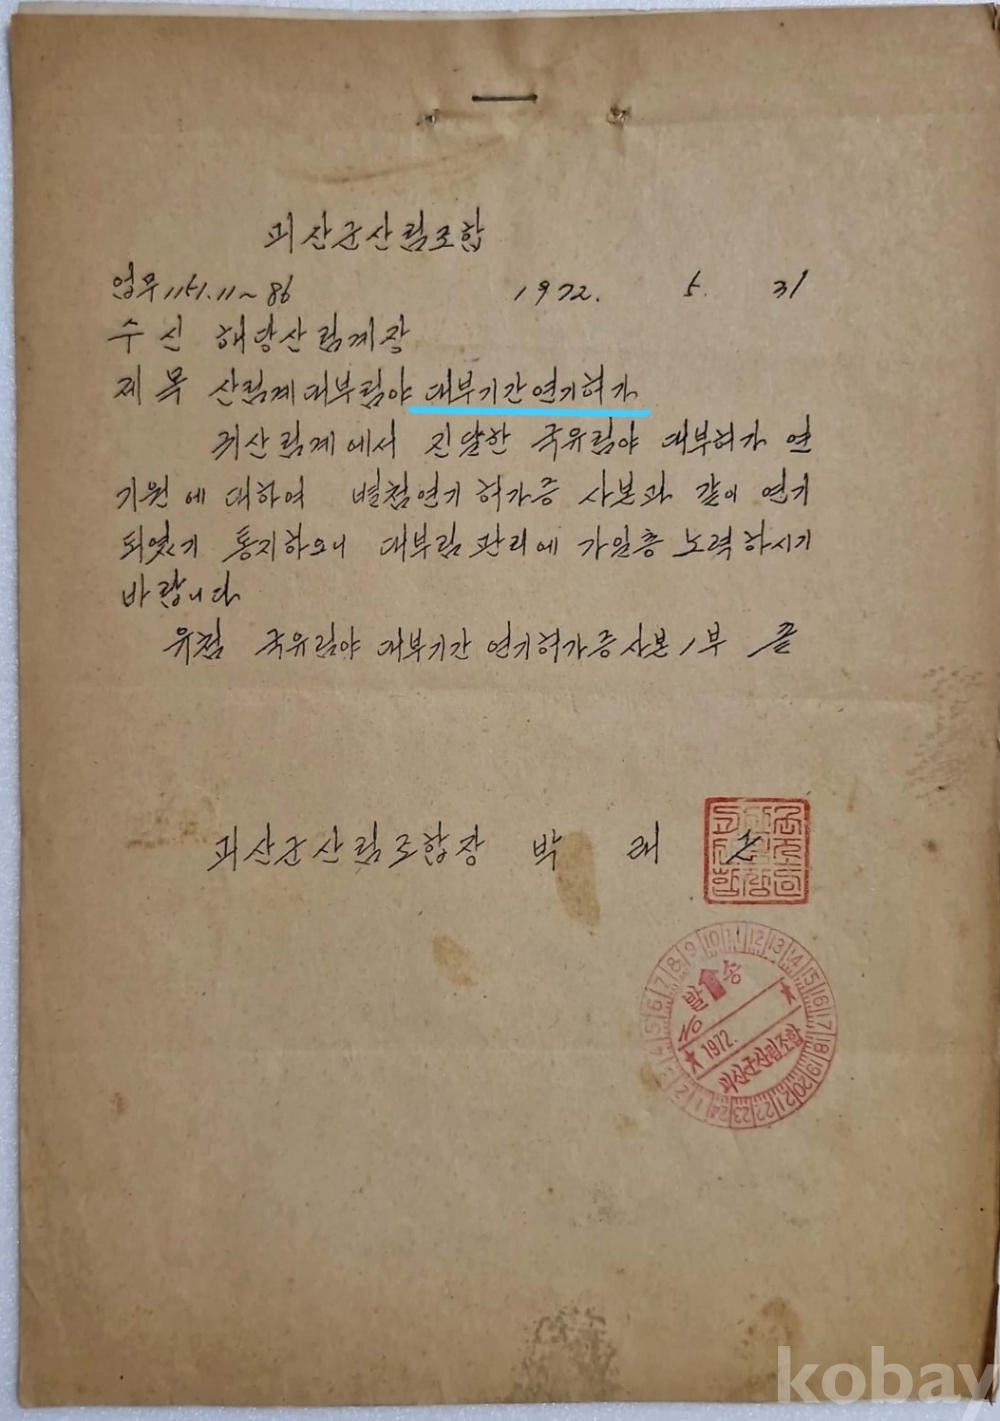 괴산군산림조합
업무 1151.11~86 1972. 5. 31
수신 해당산림계장
제목 산림계대부림야 대부기간연기허가
귀산림계에서 진달한 국유림야 대부허가 연
기원에 대하여 별첨연기 허가증 사본과 같이 연기
되였기 통지하오니 대부림 관리에 가일층 노력하시기
바랍니다
유첨 국유림야 대부기간 연기허가증사본 1부 끝
괴산군산림조합장 박 래
발송
1972.
괴산군산림조합
1 2 3 4 5 6 7 8 9 10 11 12 13 14 15 16 17 18 19 20 21 22 23 24
kobay